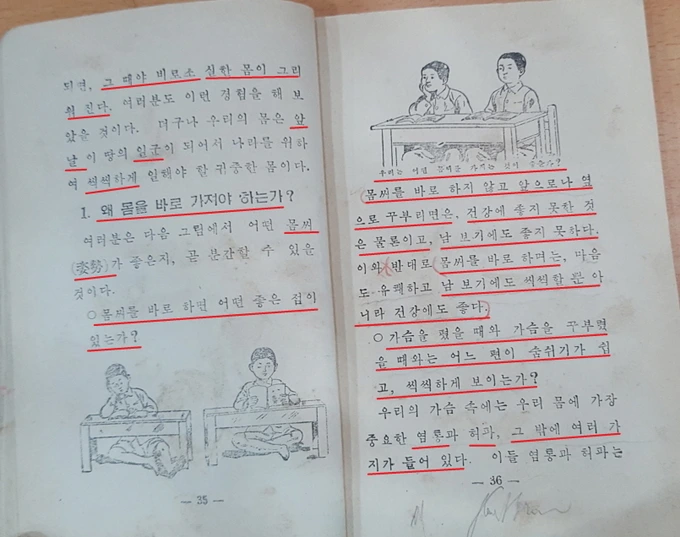 되면, 그 때야 비로소 실한 몸이 그리
워 진다. 여러분도 이런 경험을 해 보
았을 것이다. 더구나 우리의 몸은 앞
날 이 땅의 일군이 되어서 나라를 위하
여 씩씩하게 일해야 할 귀중한 몸이다.
1. 왜 몸을 바로 가져야 하는가?
여러분은 다음 그림에서 어떤 몸씨
(姿勢)가 좋은지, 곧 분간할 수 있을
것이다.
○몸씨를 바로 하면 어떤 좋은 점이
있는가?
— 35 —
우리는 어떤 몸씨를 가지는 것이 좋은가?
몸씨를 바로 하지 않고 앞으로나 옆
으로 꾸부리면은, 건강에 좋지 못한 것
은 물론이고, 남 보기에도 좋지 못하다.
이와 반대로 몸씨를 바로 하며는, 마음
도 유쾌하고 남 보기에도 씩씩할 뿐 아
니라 건강에도 좋다.
○ 가슴을 폈을 때와 가슴을 꾸부렸
을 때와는 어느 편이 숨쉬기가 쉽
고, 씩씩하게 보이는가?
우리의 가슴 속에는 우리 몸에 가장
중요한 염통과 허파, 그 밖에 여러 가
지가 들어 있다. 이들 염통과 허파는
— 36 —